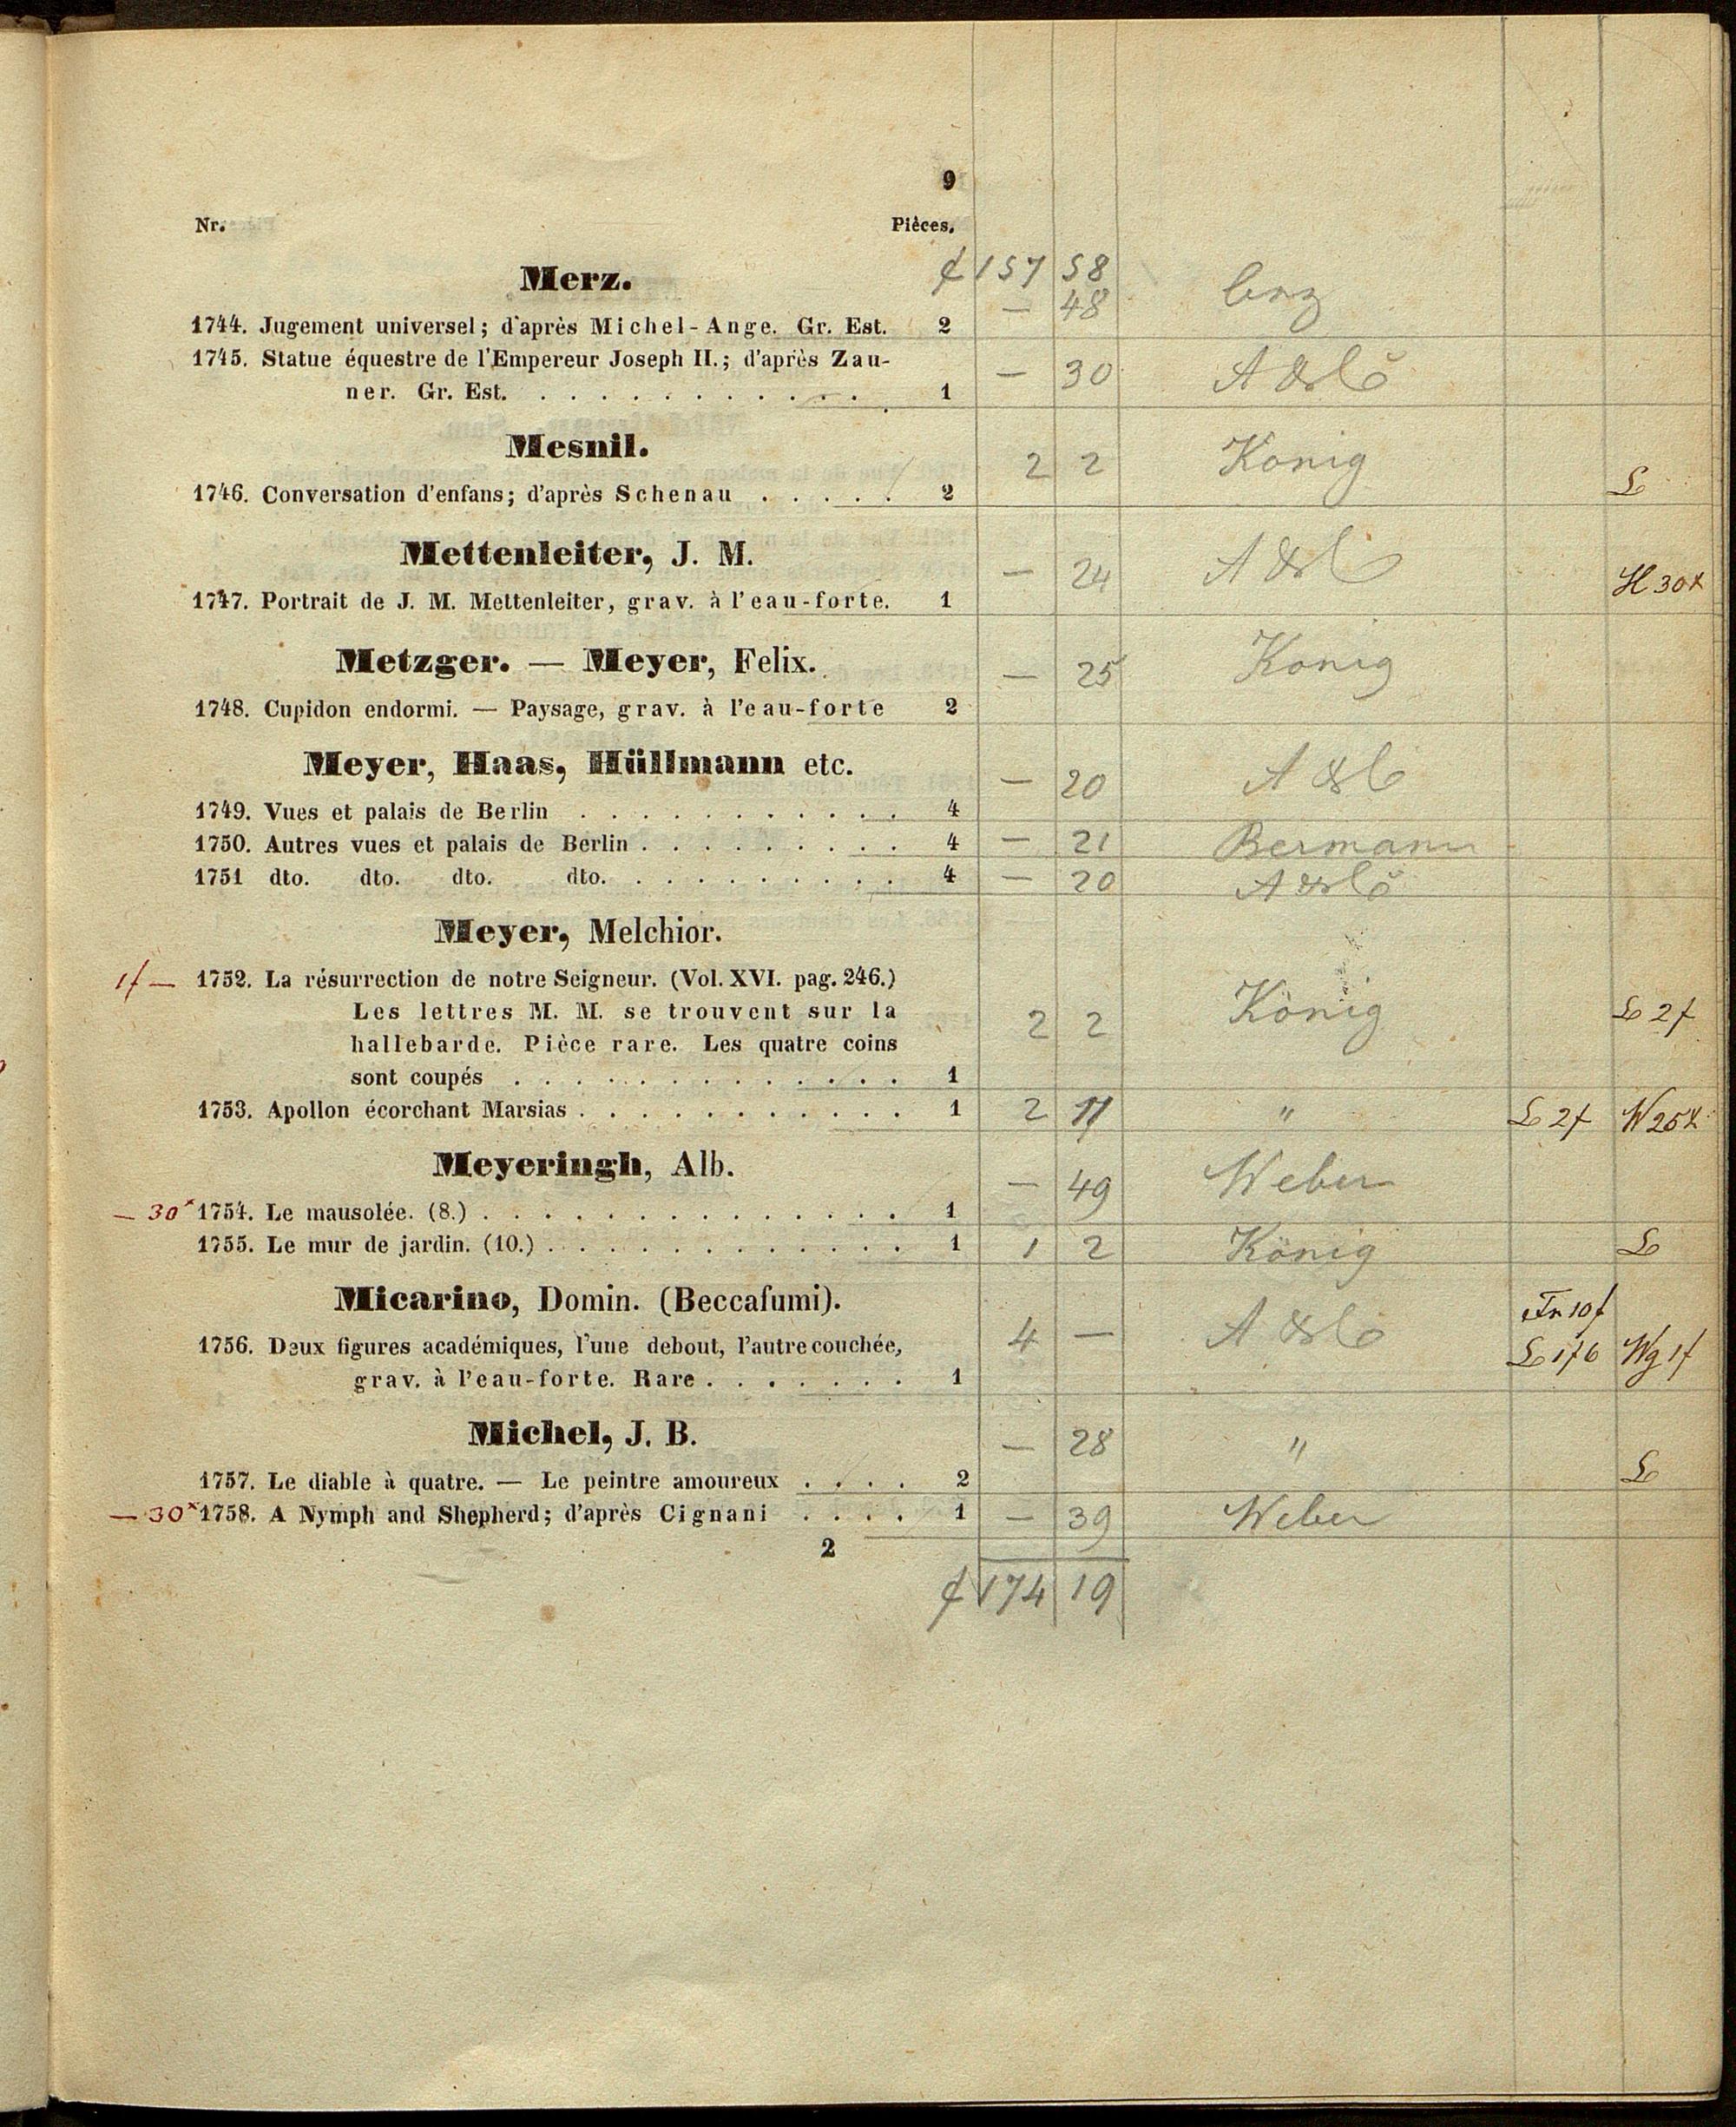 9
Nr. Pièces.
Merz. 157 58
1744. Jugement universel; d'après Michel-Ange. Gr. Est. 2 — 48
1745. Statue équestre de l'Empereur Joseph II.; d'après Zau-
ner. Gr. Est. . . . . . . . . . . . 1 — 30
Mesnil.
1746. Conversation d'enfans; d'après Schenau . . . . . 2 2 2 König
Mettenleiter, J. M.
1747. Portrait de J. M. Mettenleiter, grav. à l'eau-forte. 1 — 24 H 30x
Metzger. — Meyer, Felix.
1748. Cupidon endormi. — Paysage, grav. à l'eau-forte 2 — 25 König
Meyer, Haas, Hüllmann etc.
1749. Vues et palais de Berlin . . . . . . . . . . . 4 — 20
1750. Autres vues et palais de Berlin . . . . . . . . . 4 — 21 Bermann
1751 dto. dto. dto. dto. . . . . . . . . . . 4 — 20
Meyer, Melchior.
1f — 1752. La résurrection de notre Seigneur. (Vol. XVI. pag. 246.)
Les lettres M. M. se trouvent sur la
hallebarde. Pièce rare. Les quatre coins 2 2 König L 2f
sont coupés . . . . . . . . . . . . . 1
1753. Apollon écorchant Marsias . . . . . . . . . . . 1 2 11 " L 2f W 25x
Meyeringh, Alb.
— 30x 1754. Le mausolée. (8.) . . . . . . . . . . . . . . 1 — 49 Weber
1755. Le mur de jardin. (10.) . . . . . . . . . . . . 1 1 2 König L
Micarino, Domin. (Beccafumi). Fr 10f
1756. Deux figures académiques, l'une debout, l'autre couchée, 4 — L 1f6 Wg 1f
grav. à l'eau-forte. Rare . . . . . . . 1
Michel, J. B.
1757. Le diable à quatre. — Le peintre amoureux . . . . 2 — 28 " L
— 30x 1758. A Nymph and Shepherd; d'après Cignani . . . . 1 — 39 Weber
2
174 19